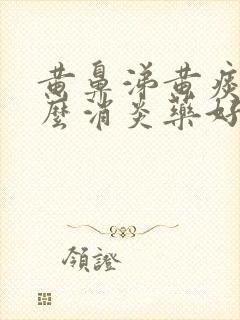 黄鼻涕黄痰
麼消炎藥好
領證